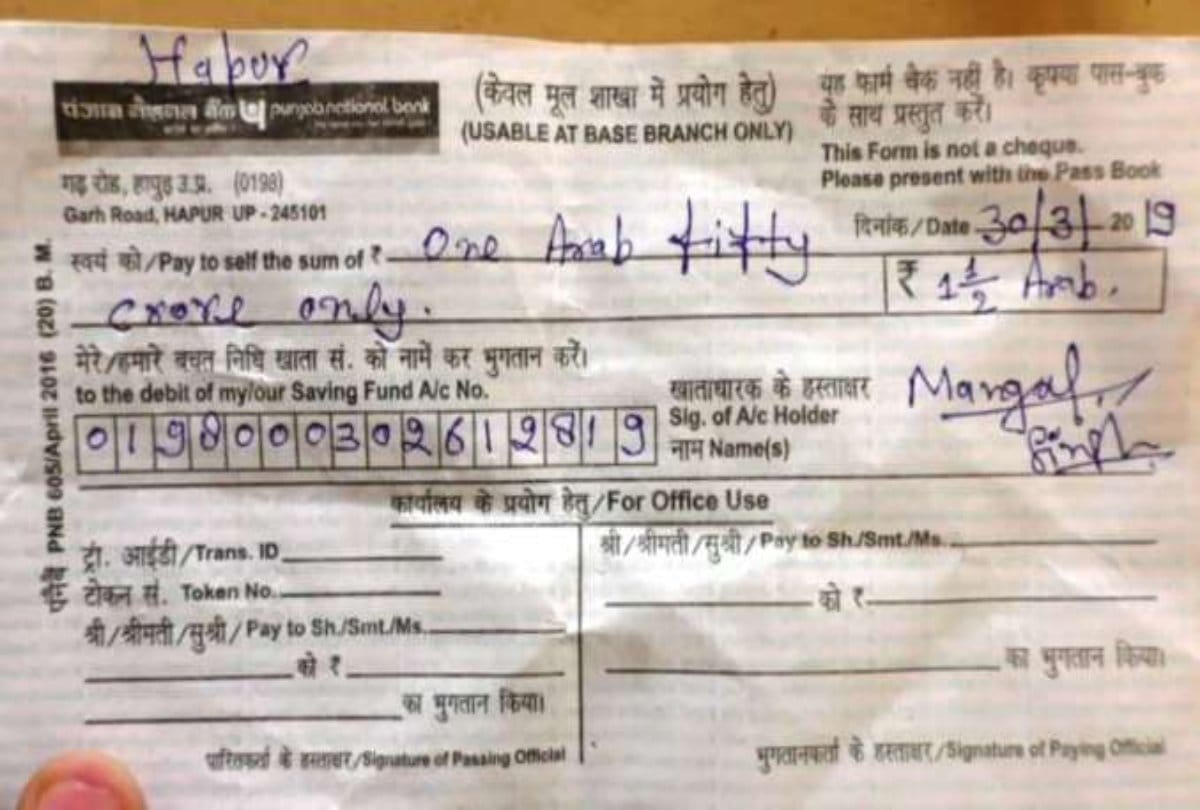 Hapur
पंजाब नैशनल बैंक punjab national bank
(केवल मूल शाखा में प्रयोग हेतु)
(USABLE AT BASE BRANCH ONLY)
यह फार्म चैक नहीं है। कृपया पास-बुक
के साथ प्रस्तुत करें।
This Form is not a cheque.
Please present with the Pass Book
गढ़ रोड, हापुड़ उ.प्र. (0198)
Garh Road, HAPUR UP - 245101
दिनांक/Date 30/3/ 2019
स्वयं को/Pay to self the sum of ₹ One Arab fifty
₹ 1 1/2 Arab.
crore only.
मेरे/हमारे बचत निधि खाता सं. को नामें कर भुगतान करें।
to the debit of my/our Saving Fund A/c No.
0198000302612819
खाताधारक के हस्ताक्षर
Sig. of A/c Holder
नाम Name(s)
Mangal
Singh
एनबी PNB 605/April 2016 (20) B. M.
कार्यालय के प्रयोग हेतु/For Office Use
ट्रां. आईडी/Trans. ID
टोकन सं. Token No.
श्री/श्रीमती/सुश्री/Pay to Sh./Smt./Ms.
को ₹
का भुगतान किया।
पारितकर्ता के हस्ताक्षर/Signature of Passing Official
श्री/श्रीमती/सुश्री/Pay to Sh./Smt./Ms.
को ₹
का भुगतान किया।
भुगतानकर्ता के हस्ताक्षर/Signature of Paying Official